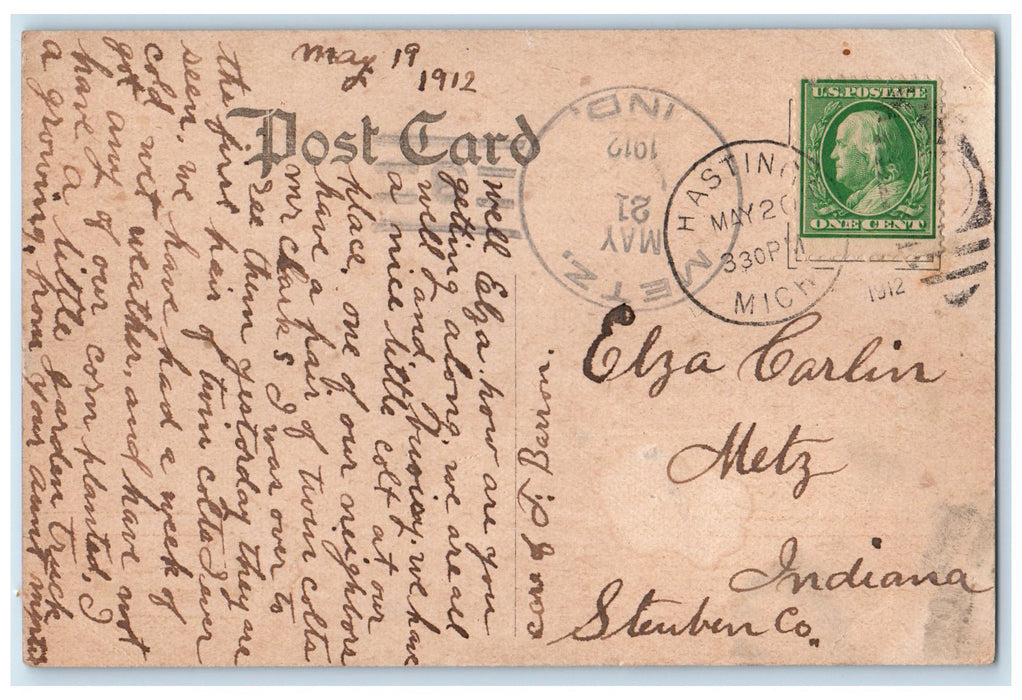 May 19
1912
Post Card
Well Elza. how are you
geting along, we are all
well and busiey. we have
a nice little colt at our
place, one of our neighbors
have a pair of twin colts
Mr Clark s I was over to
see them yesterday they are
the first pair of twin colts I ever
seen, we have had a week of
cold wet weather, and have not
got any of our corn planted. I
have a little garden truck
a growing, from your aunt
U.S. POSTAGE
ONE CENT
METZ.
IND.
MAY
21
1912
HASTIN
MAY 20
330PM
MICH
1912
Elza Carlin
Metz
Indiana
Steuben Co.